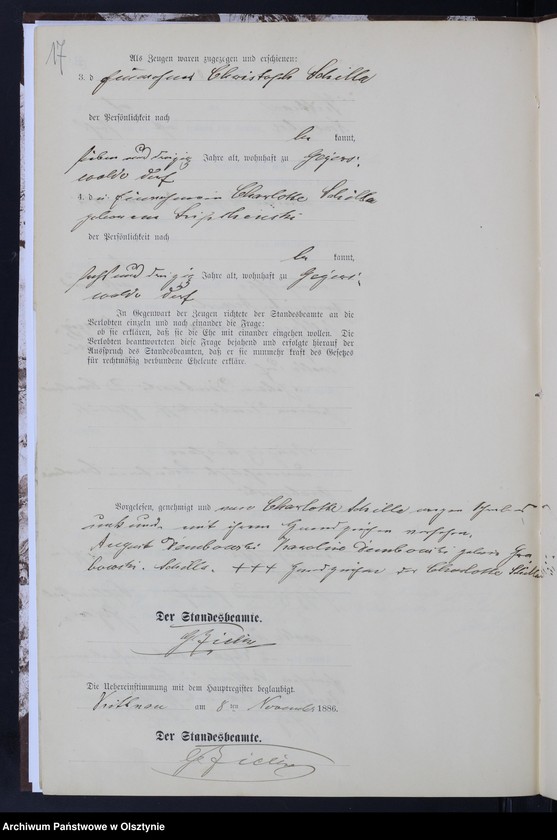 17
Als Zeugen waren zugezogen und erschienen:
3. d Christoph Schilla
der Persönlichkeit nach
kannt,
sieben und dreißig Jahre alt, wohnhaft zu Geyers-
walde Dorf
4. d Charlotte Schilla
geborene
der Persönlichkeit nach
kannt,
sechs und dreißig Jahre alt, wohnhaft zu Geyers-
walde Dorf
In Gegenwart der Zeugen richtete der Standesbeamte an die
Verlobten einzeln und nach einander die Frage:
ob sie erklären, daß sie die Ehe mit einander eingehen wollen. Die
Verlobten beantworteten diese Frage bejahend und erfolgte hierauf der
Ausspruch des Standesbeamten, daß er sie nunmehr kraft des Gesetzes
für rechtmäßig verbundene Eheleute erkläre.
Vorgelesen, genehmigt und von Charlotte Schilla wegen
mit ihrem Handzeichen versehen.
August Dembowski Karoline Dembowski geborne Gra-
bowski. Schilla. +++ Handzeichen der Charlotte Schilla
Der Standesbeamte.
Die Uebereinstimmung mit dem Hauptregister beglaubigt.
am 8ten November 1886.
Der Standesbeamte.
Archiwum Państwowe w Olsztynie